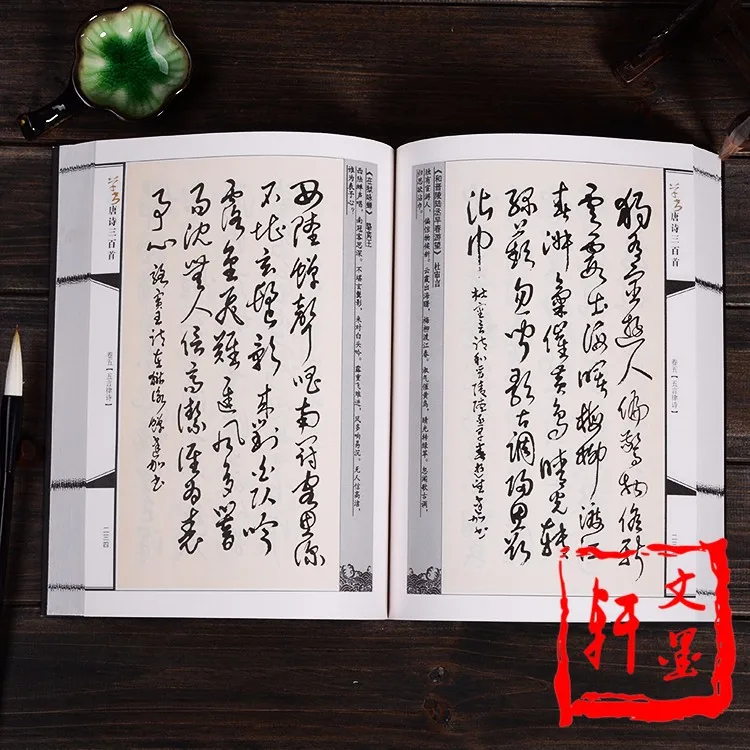 唐诗三百首
卷五【五言律诗】
二三四
《在狱咏蝉》骆宾王
西陆蝉声唱，南冠客思深。不堪玄鬓影，来对白头吟。露重飞难进，风多响易沉。无人信高洁，
谁为表予心？
西陸蟬聲唱南冠客思深
不堪玄鬢影來對白頭吟
露重飛難進風多響
易沉無人信高潔誰為表
予心
駱賓王詩在獄詠蟬
《和晋陵陆丞早春游望》杜审言
独有宦游人，偏惊物候新。云霞出海曙，梅柳渡江春。淑气催黄鸟，晴光转绿蘋。忽闻歌古调，
归思欲沾巾。
獨有宦遊人偏驚物候新
雲霞出海曙梅柳渡江
春淑氣催黃鳥晴光轉
綠蘋忽聞歌古調歸思欲
沾巾
杜審言詩和晉陵陸丞早春遊望
唐诗三百首
卷五【五言律诗】
文墨
轩